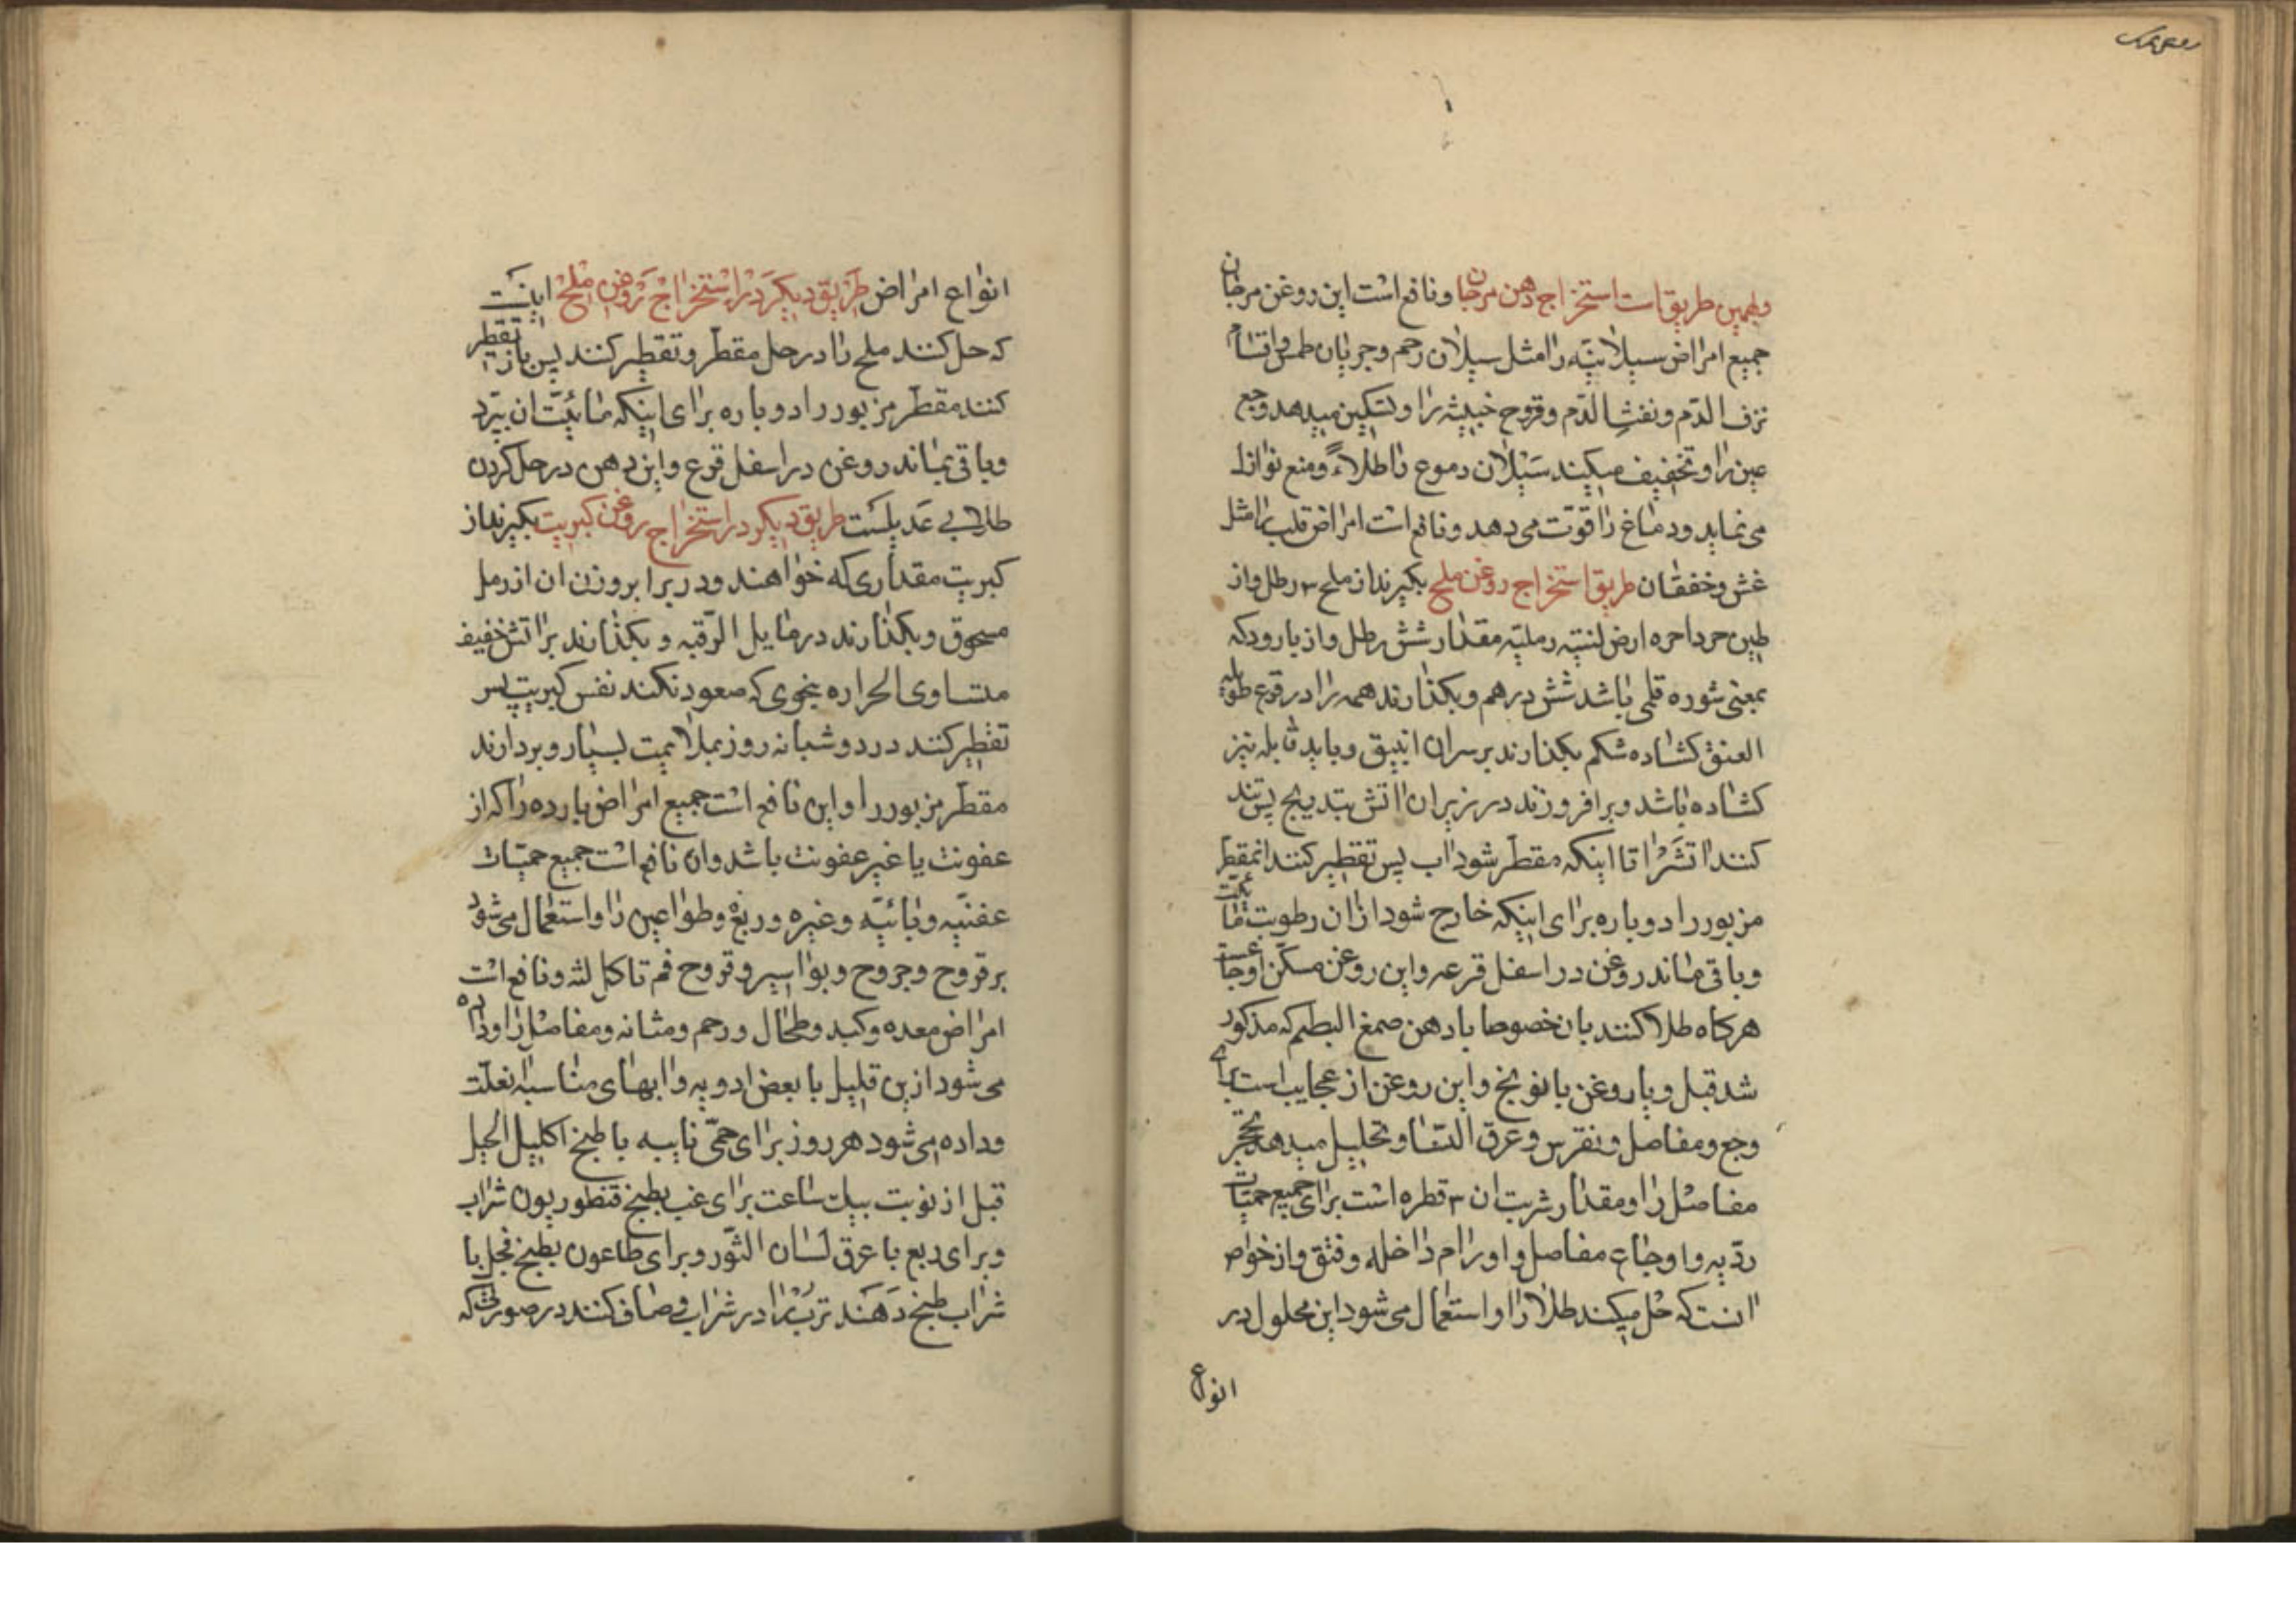 وبهمین طریق است استخراج دهن مرجان و نافع است این روغن مرجان
جمیع امراض سیلانیّه را مثل سیلان رحم و جریان طمث و اقسام
نزف الدّم و نفث الدّم و قروح خبیثه را و تسکین میدهد وجع
عین را و تخفیف میکند سیلان دموع را طلاءً و منع نوازل
می نماید و دماغ را قوّت می دهد و نافع است امراض قلب را مثل
غش و خفقان طریق استخراج روغن ملح بکیرند از ملح ۳ رطل و از
طین حر احمره ارض لنتیّه رملیّه مقدار شش رطل و از بارود که
بمعنی شوره قلمی باشد شش درهم و بکذارند همه را در قرع طویله
العنق کشاده شکم بکذارند بر سر ان انبیق و باید قابله نیز
کشاده باشد و برافروزند در زیر ان اتش بتدریج پس تند
کنند اتش را تا اینکه مقطّر شود اب پس تقطیر کنند انمقطر
مزبور را دوباره برای اینکه خارج شود از ان رطوبت مائیّت
و باقی ماند روغن در اسفل قرعه و این روغن مسکّن اوجاعست
هرکاه طلا کنند بان خصوصا با دهن صمغ البطم که مذکور
شد قبل و با روغن بانونج و این روغن از عجایب است برای
وجع و مفاصل و نقرس و عرق النسا و تحلیل میدهد تحجّر
مفاصل را و مقدار شربت ان ۳ قطره است برای جمیع حمیّات
ردّیه و اوجاع مفاصل و اورام داخله و فتق و از خواص
انست که حل میکند طلا را و استعمال می شود این محلول در
انواع
انواع امراض طریق دیکر در استخراج روغن ملح اینست
که حل کنند ملح را در خل مقطّر و تقطیر کنند پس باز تقطیر
کنند مقطّر مزبور را دوباره برای اینکه مائیّت ان بپرد
و باقی بماند روغن در اسفل قرع و این دهن در حل کردن
طلا بی عدیلست طریق دیکر در استخراج روغن کبریت بکیرند از
کبریت مقداری که خواهند و در برابر وزن ان از رمل
مسحوق و بکذارند در مایل الرّقبه و بکذارند بر اتش خفیف
متساوی الحراره بنحوی که صعود نکند نفس کبریت پس
تقطیر کنند در دو شبانه روز بملایمت بسیار و بردارند
مقطّر مزبور را و این نافع است جمیع امراض بارده را که از
عفونت یا غیر عفونت باشد و ان نافع است جمیع حمیّات
عفنیّه وبائیّه و غیره و ربع و طواعین را و استعمال می شود
بر قروح و جروح و بواسیر و قروح فم تا کل لثه و نافع است
امراض معده و کبد و طحال و رحم و مثانه و مفاصل را و داده
می شود از ین قلیل با بعض ادویه و ابهای مناسبه بعلّت
و داده می شود هر روز برای حمّی نایبه با طبخ اکلیل الجبل
قبل از نوبت بیک ساعت برای غب بطبخ قنطوریون شراب
و برای ربع با عرق لسان الثّور و برای طاعون بطبخ فجل با
شراب طبخ دهند ترب را در شراب و صاف کنند در صورتی که